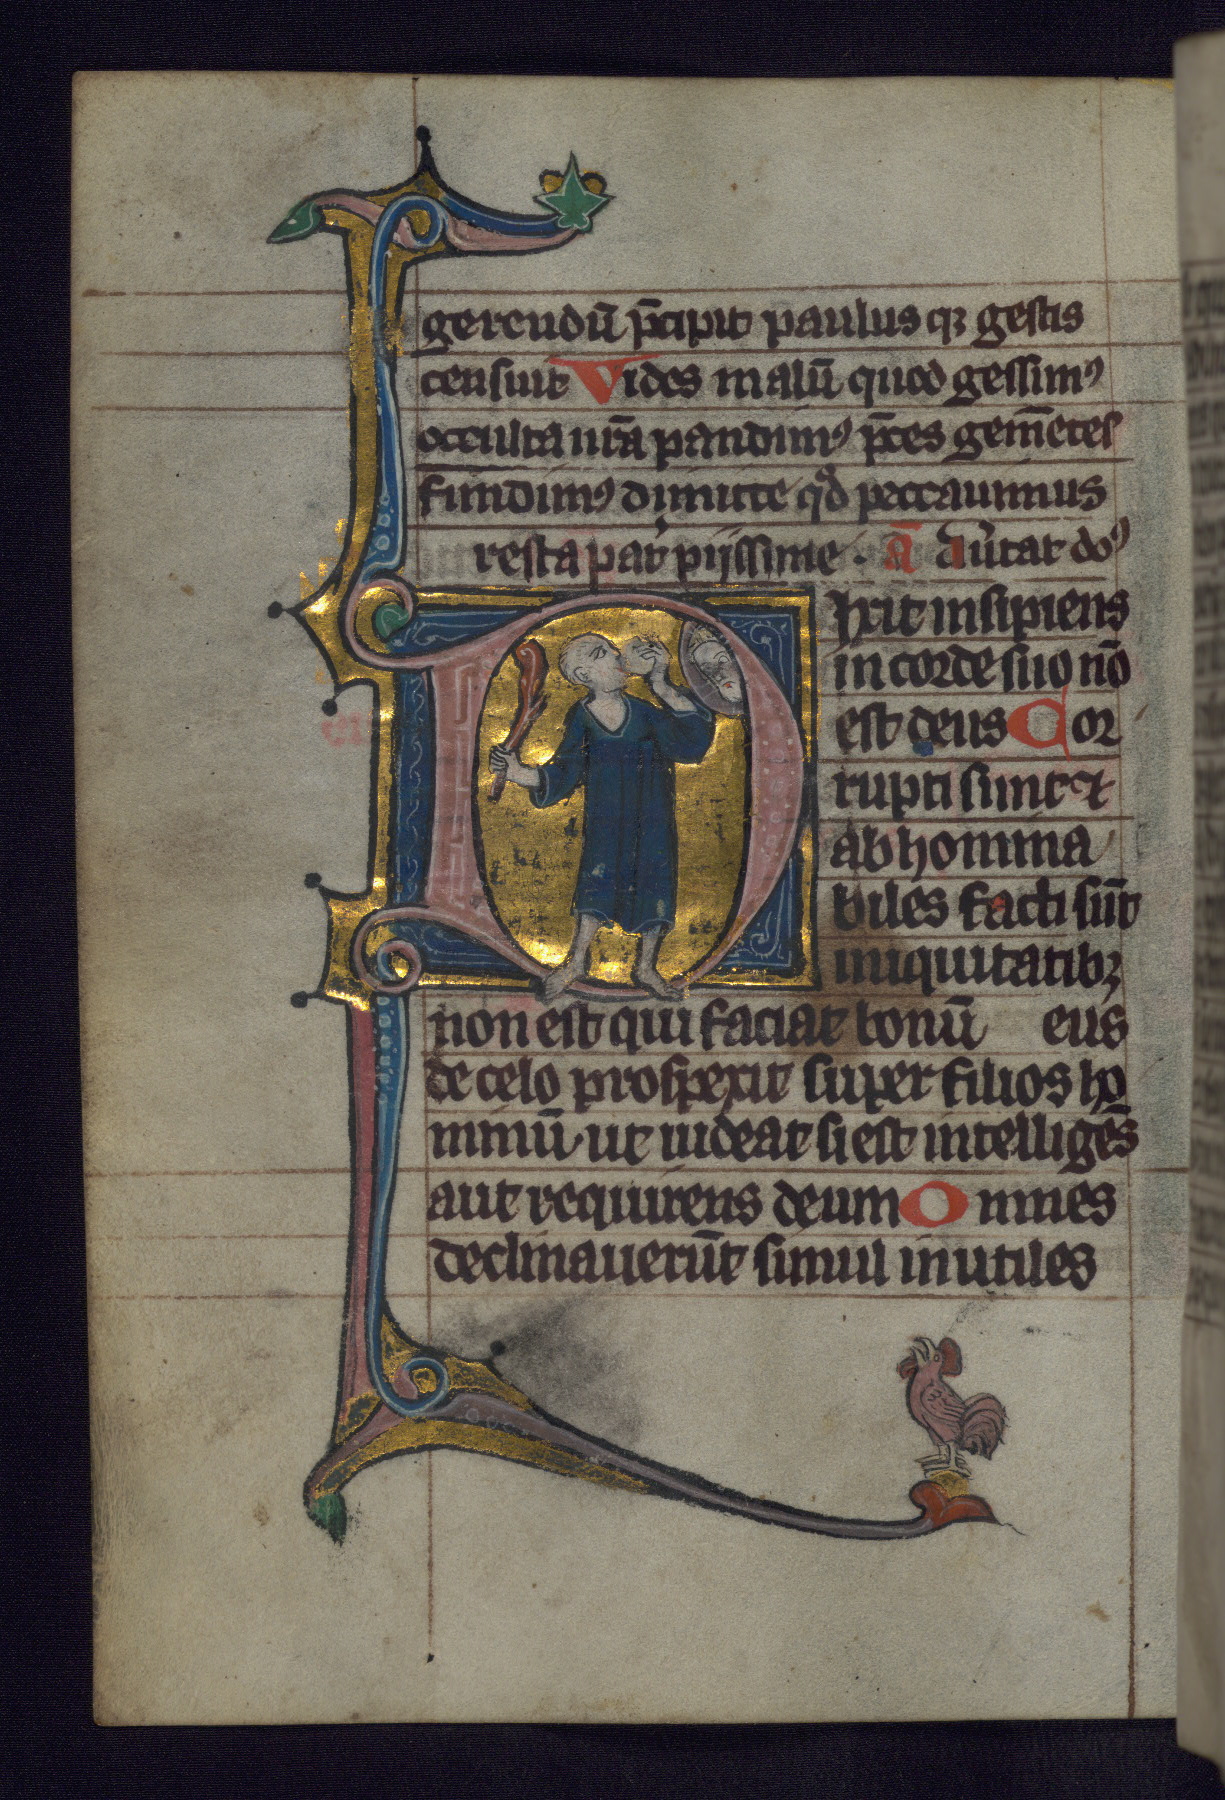 gerendū p̄cipit paulus qꝫ gestis
censuit Vides malū quod gessimꝰ
occulta nr̄a pandimꝰ p̄ces gem̄etes
fundimꝰ dimitte qd̓ peccauimus
resta pat̓ pijssime . ā Au̓tat doꝰ
Dixit insipiens
in corde suo nō
est deus Cor
rupti sunt et
abhomina
biles facti sūt
iniquitatibꝫ
non est qui faciat bonū eus
de celo prospexit super filios ho
minū ut uideat si est intelligēs
aut requirens deum Omnes
declinauerūt simul inutiles